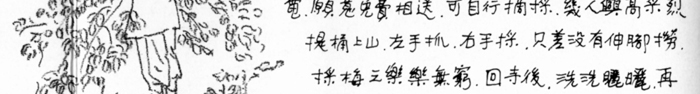 願意免費相送,可自行摘採。幾人興高采烈
提桶上山,左手抓,右手採,只差沒有伸腳撈,
採梅之樂樂無窮。回寺後,洗洗曬曬,再